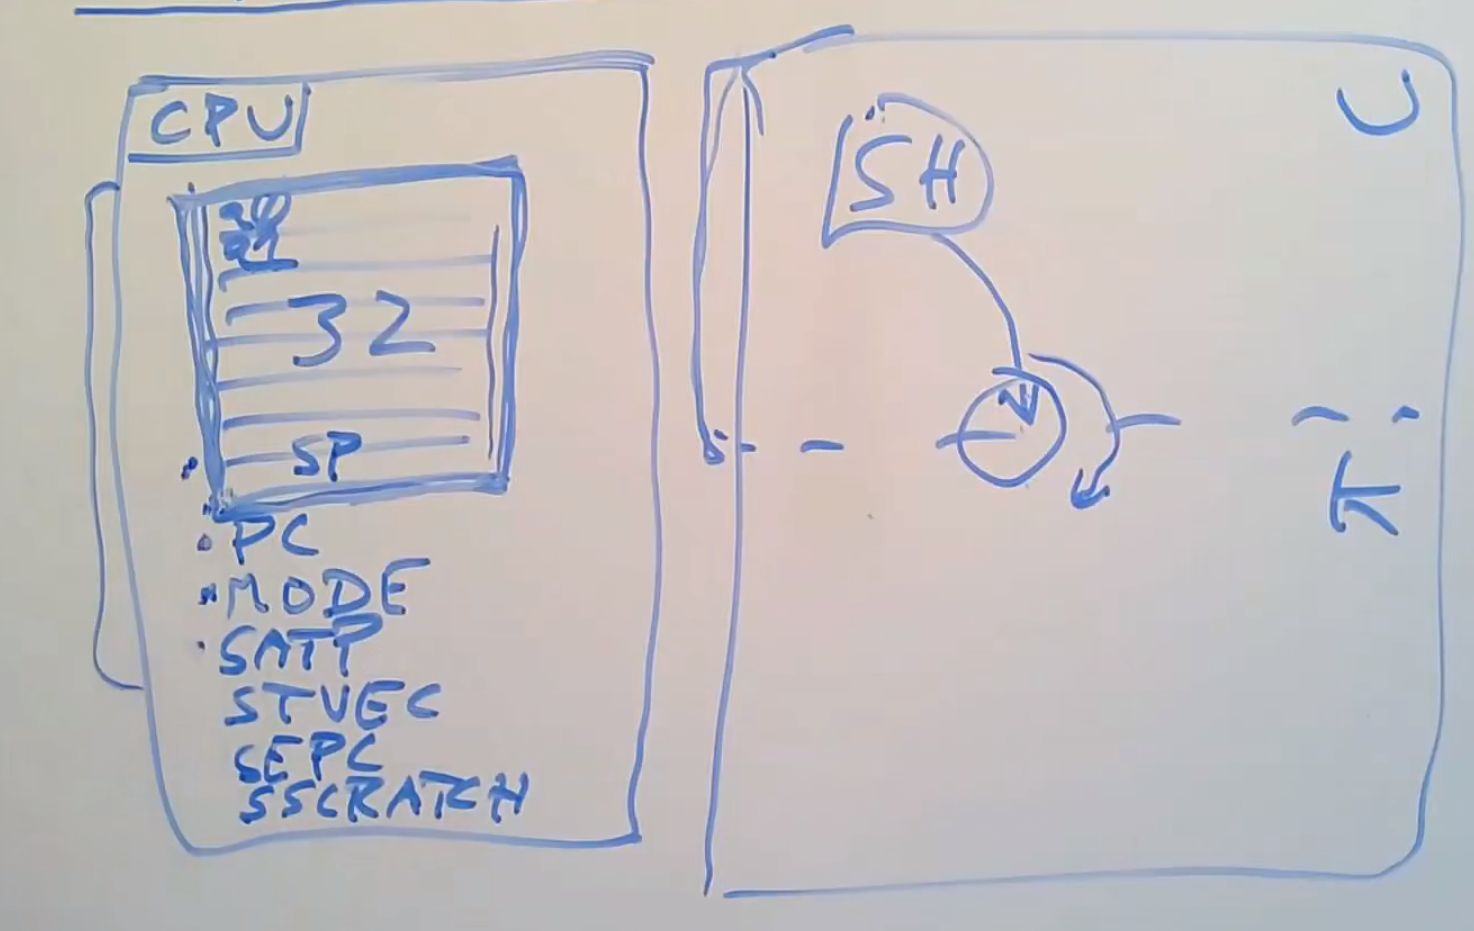 CPU
32
SP
PC
MODE
SATP
STVEC
SEPC
SSCRATCH
SH
U